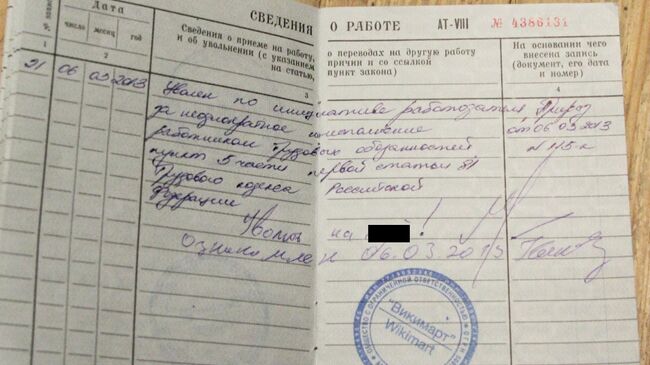 Дата
СВЕДЕНИЯ О РАБОТЕ
AT-VIII № 4386131
число месяц год
Сведения о приеме на работу, о переводах на другую работу
и об увольнении (с указанием причин и со ссылкой
на статью, пункт закона)
На основании чего
внесена запись
(документ, его дата
и номер)
2 3 4
21 06 03 2013 Уволен по инициативе работодателя Приказ
за неоднократное неисполнение от 06.03.2013
работником трудовых обязанностей
пункт 5 части первой статьи 81
Трудового кодекса Российской
Федерации
Уволен на !
ознакомлен 06.03.2013
"Викимарт"
Wikimart
ОБЩЕСТВО С ОГРАНИЧЕННОЙ ОТВЕТСТВЕННОСТЬЮ